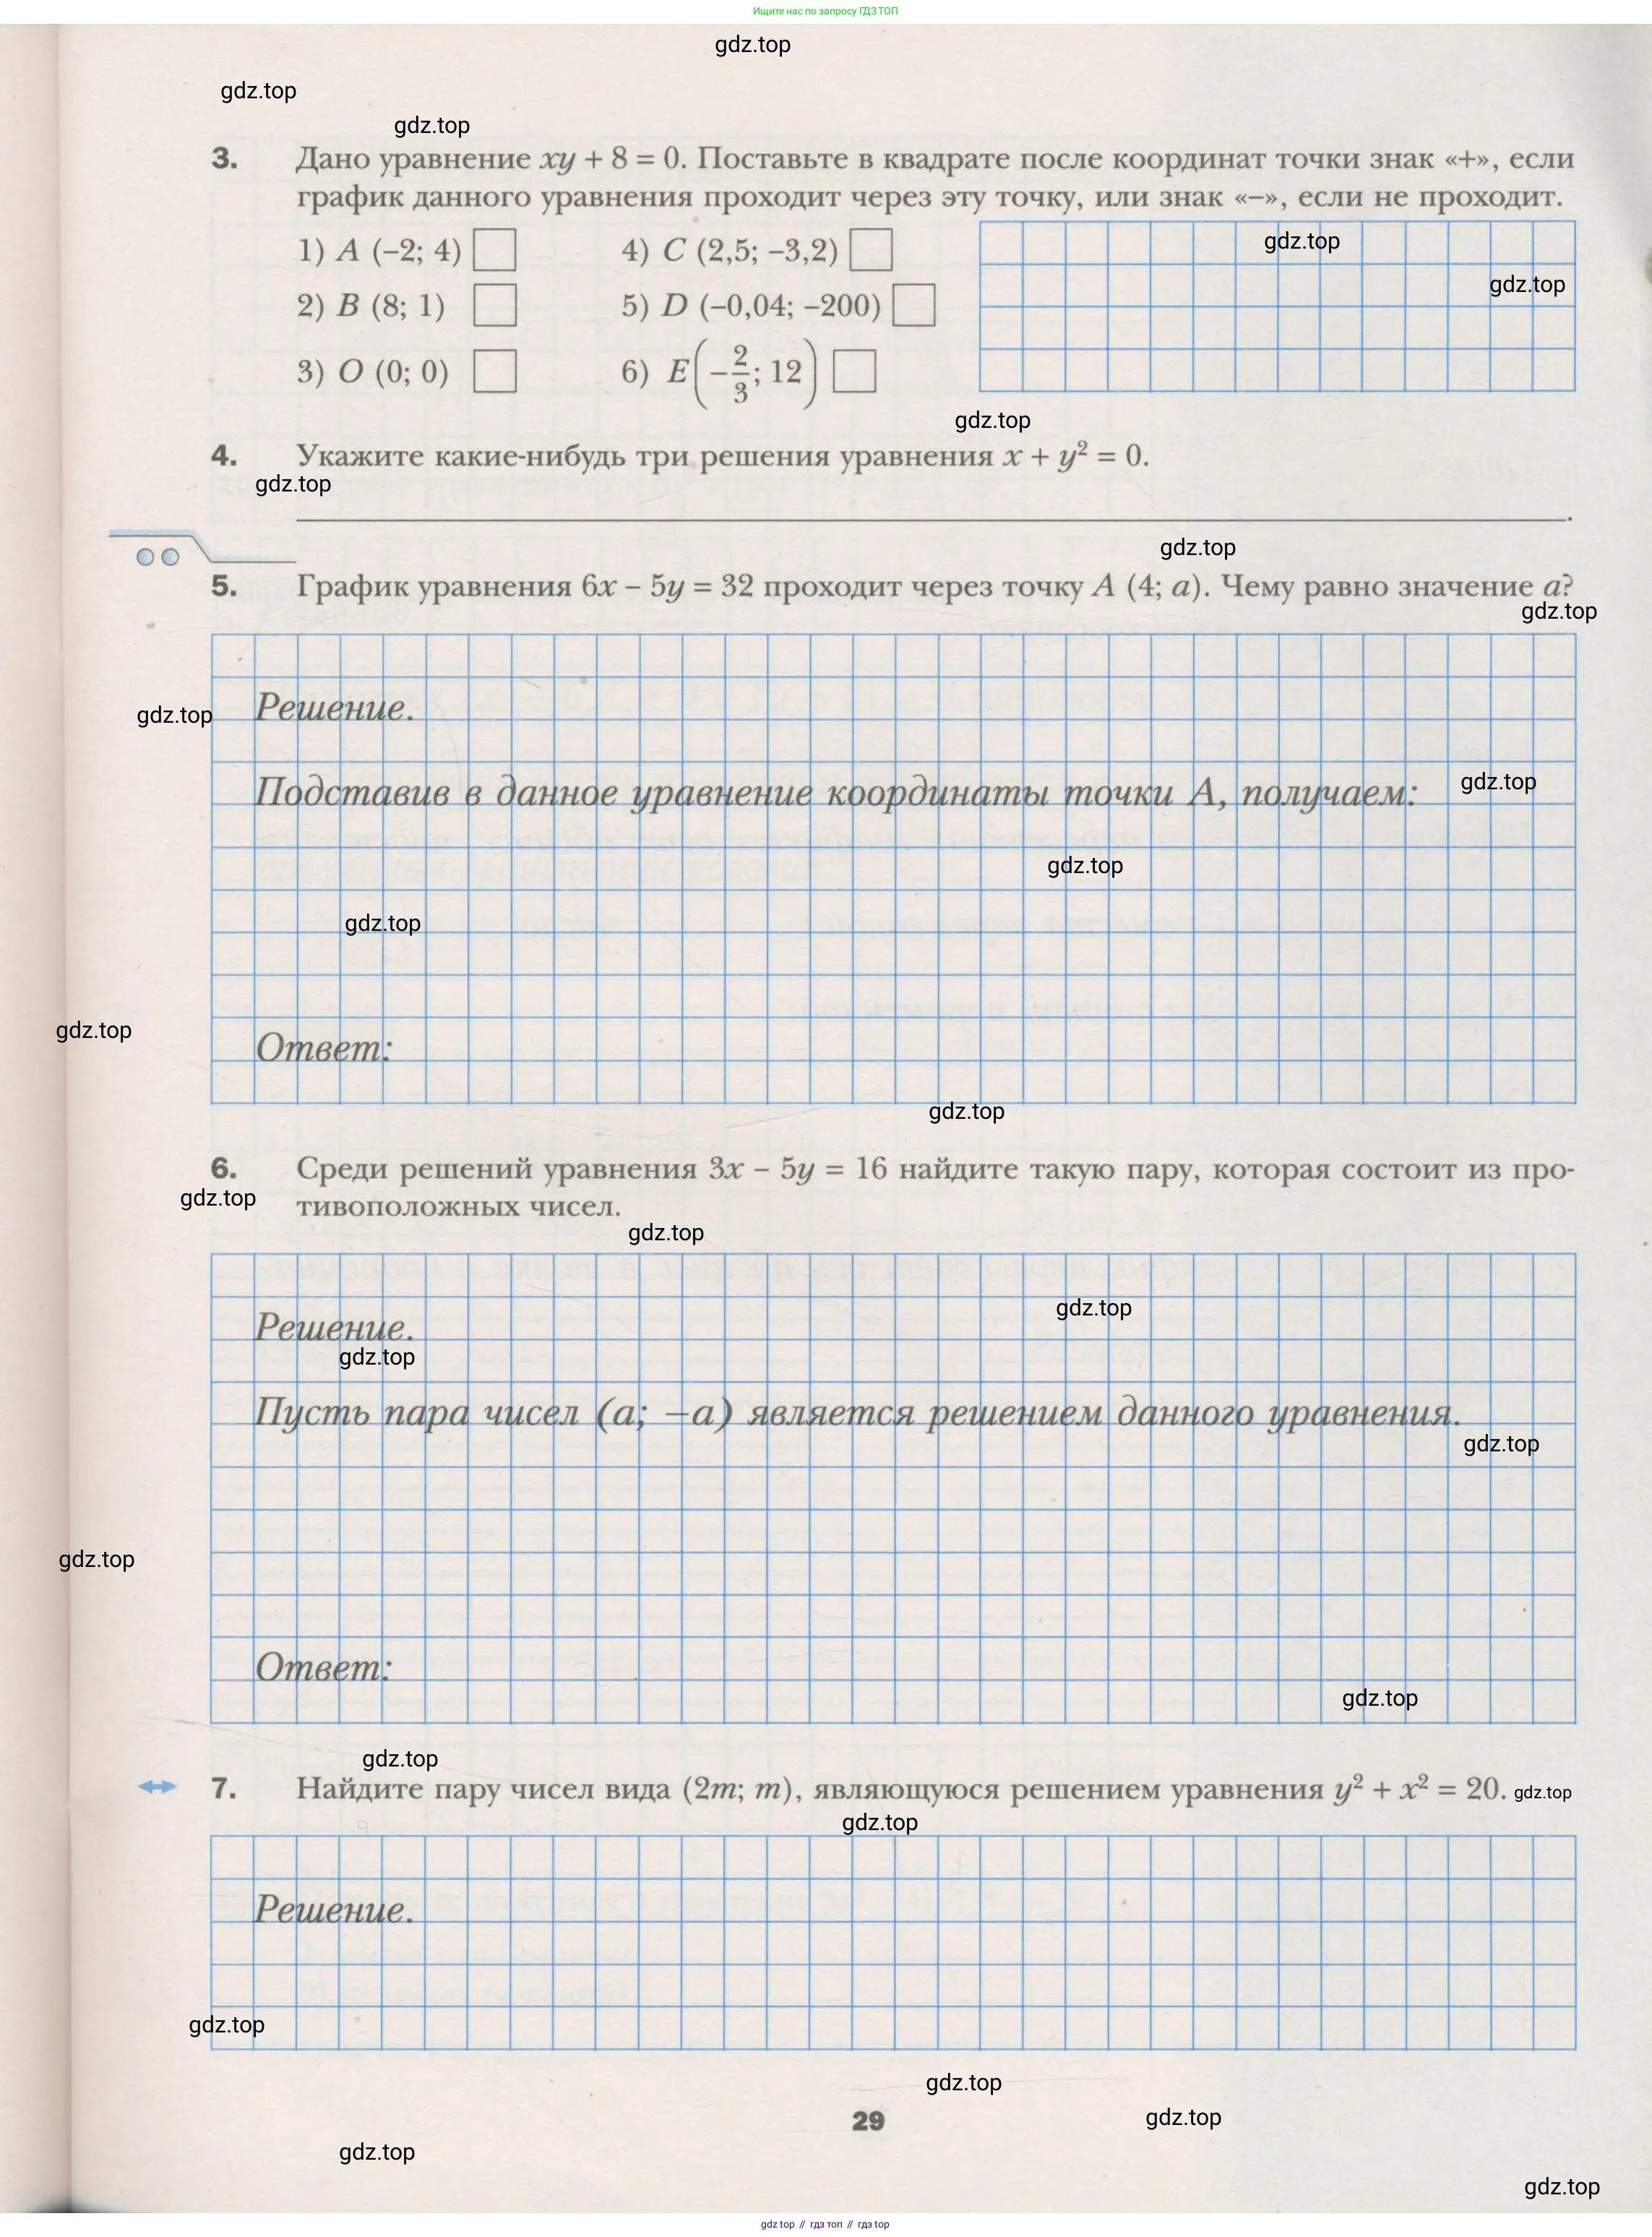 Ищите нас по запросу ГДЗ ТОП
gdz.top
gdz.top
gdz.top
3. Дано уравнение xy + 8 = 0. Поставьте в квадрате после координат точки знак «+», если
график данного уравнения проходит через эту точку, или знак «–», если не проходит.
1) A (–2; 4) 4) C (2,5; –3,2)
gdz.top
gdz.top
2) B (8; 1) 5) D (–0,04; –200)
3) O (0; 0) 6) E(–2/3; 12)
gdz.top
4. Укажите какие-нибудь три решения уравнения x + y² = 0.
gdz.top
.
gdz.top
5. График уравнения 6x – 5y = 32 проходит через точку A (4; a). Чему равно значение a?
gdz.top
Решение.
gdz.top
Подставив в данное уравнение координаты точки A, получаем:
gdz.top
gdz.top
gdz.top
gdz.top
Ответ:
gdz.top
6. Среди решений уравнения 3x – 5y = 16 найдите такую пару, которая состоит из про-
тивоположных чисел.
gdz.top
gdz.top
gdz.top
Решение.
gdz.top
Пусть пара чисел (a; –a) является решением данного уравнения.
gdz.top
gdz.top
Ответ:
gdz.top
gdz.top
7. Найдите пару чисел вида (2m; m), являющуюся решением уравнения y² + x² = 20.
gdz.top
gdz.top
Решение.
gdz.top
gdz.top
29
gdz.top
gdz.top
gdz.top
gdz top // гдз топ // гдз top